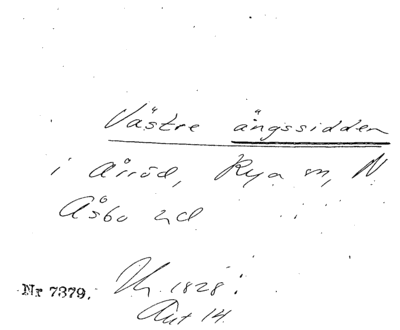 Västre ängssidden
i Årröd, Rya sn, N.
Åsbo hd
Nr 7379. Uh 1828:
Aut 14.